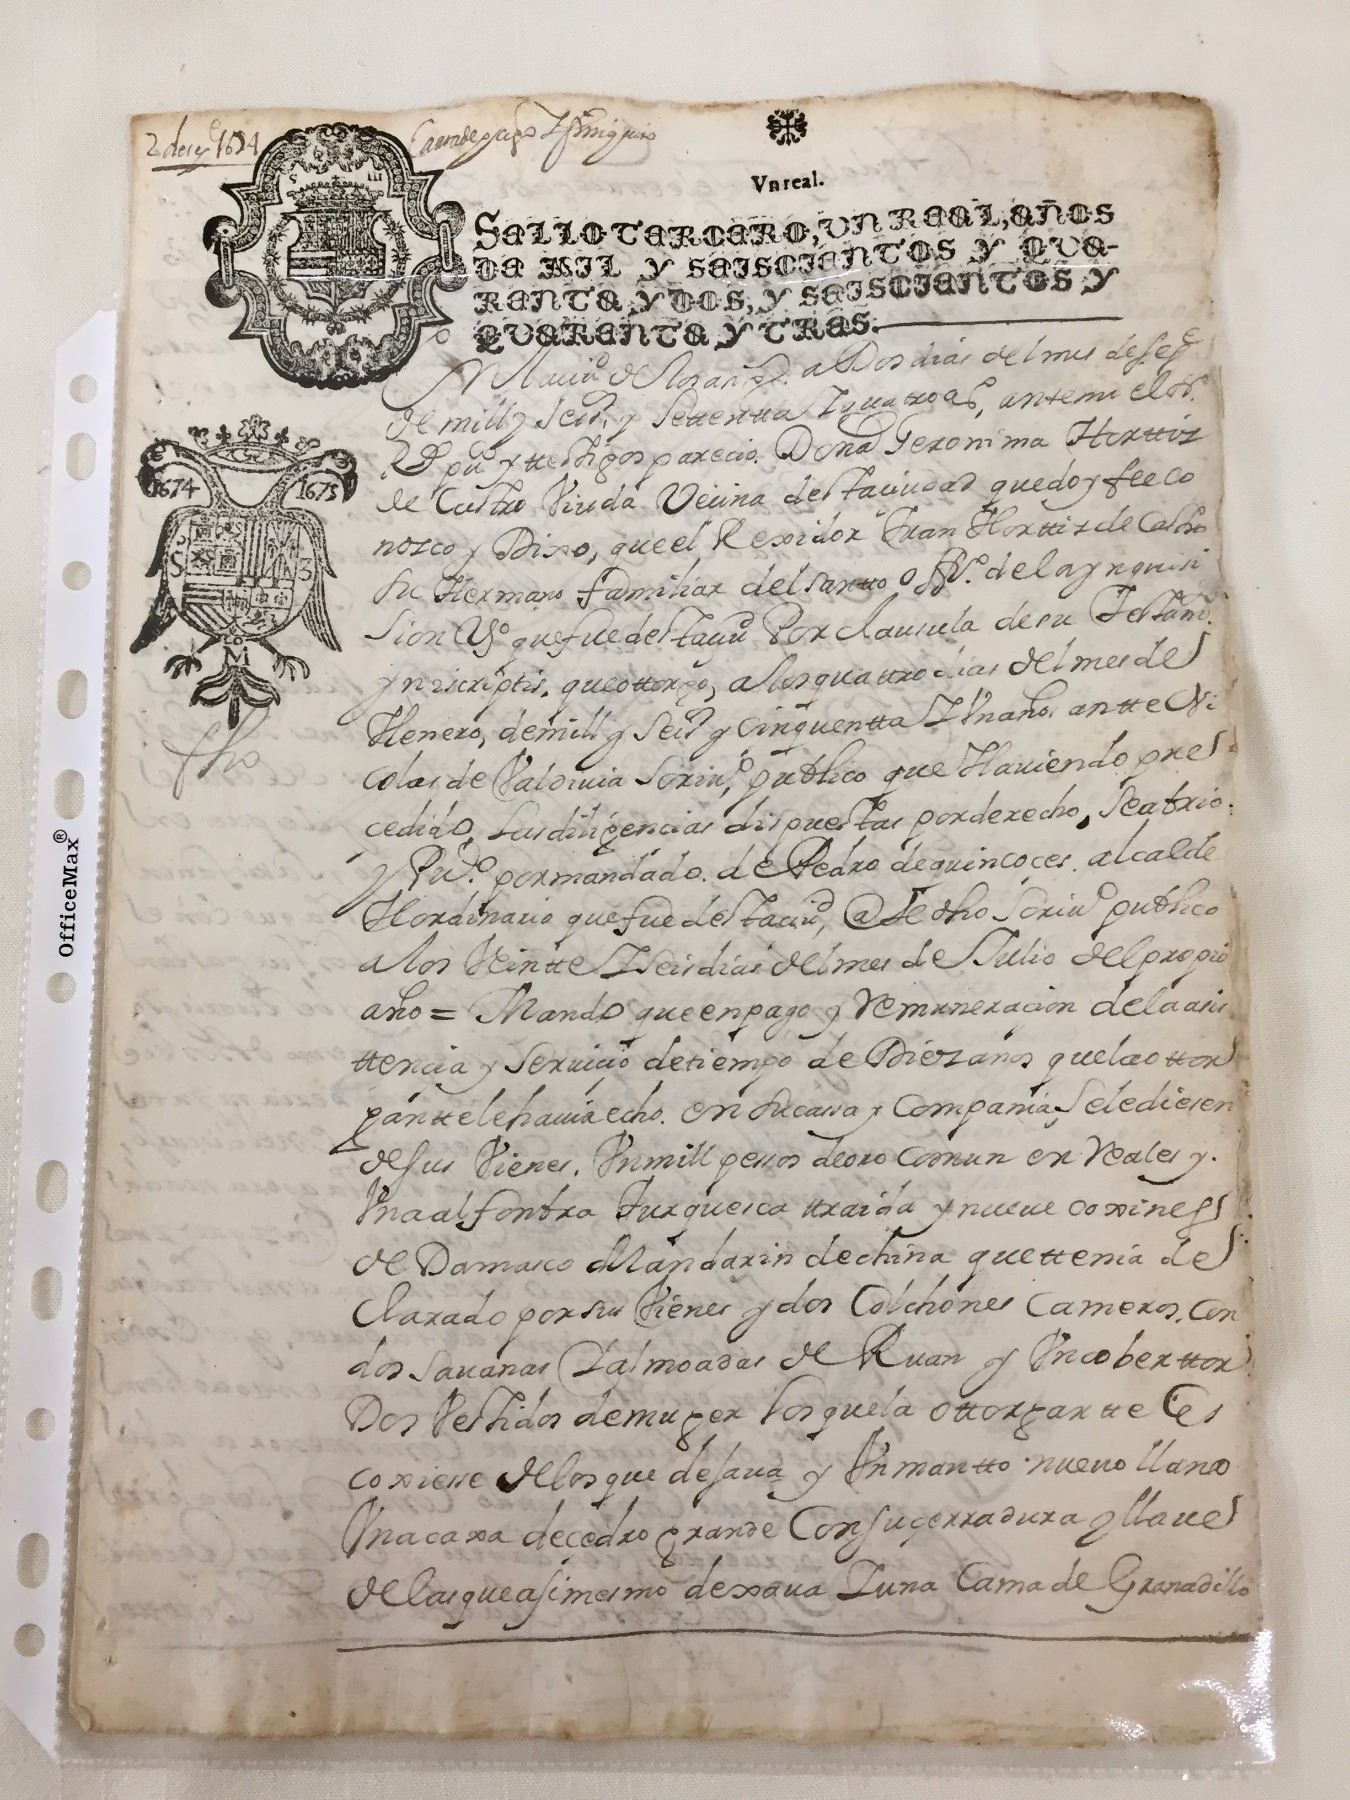 2 de sepe 1674
Carta de pago y finiquito
Vn real.
SELLO TERCERO, VN REAL, AÑOS
DE MIL Y SEISCIENTOS Y QVA-
RENTA Y DOS, Y SEISCIENTOS Y
QVARENTA Y TRES.
1674 1675
S 3
M
OfficeMax®
En la ciud de los ang.s a Dos dias del mes de sepe
de mill y seis.s y settentta y quatro as, ante mi el
pu.co y testigos parecio Dona Geronima Horttiz
de Castro Viuda Vecina desta ciudad que doy fee co
nozco y Dixo, que el Rexidor Juan Horttiz de Castro
su Hermano familiar del santto offo. de la ynquisi
sion Vo que fue desta ciud Por clausula de su Testam.
ynscriptis, que ottorgo, a los quattro dias del mes de
Henero, de mill y seis.s y cinquentta y Vn años antte Ni
colas de Valdivia scriuo, publico que Haviendo pre
cedido, las diligencias dispuestas por derecho, se abrio
y Puco por mandado de Pedro de quincoces alcalde
Hordinario que fue desta ciud, antte dho scriuo publico
a los Veintte y seis dias del mes de Julio del propio
año = Mando que en pago y remuneracion de la asis
ttencia y servicio de tiempo de Diez años que la ottor
gantte le havia echo en su cassa y compania, se le diesen
de sus Vienes, Vn mill pessos de oro comun en reales y
Vna alfonbra Turquesca ttraida y nueve coxines
de Damasco Mandarin de china que ttenia de
clarado por sus Vienes y dos Colchones cameros, con
dos savanas y almoadas de Ruan y Vn coberttor
Dos Vestidos de muger los que la ottorgantte es
coxiesse de los que dejava y Vn mantto nuevo llano
Vna caxa de cedro grande con su cerradura y llave
de las que asimesmo dexava y una cama de Granadillo
dho